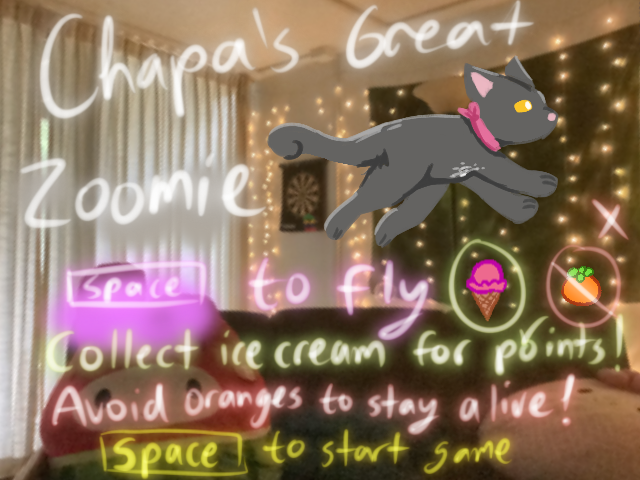 Chapa's Great
Zoomie
Space to fly
Collect ice cream for points!
Avoid oranges to stay alive!
Space to start game